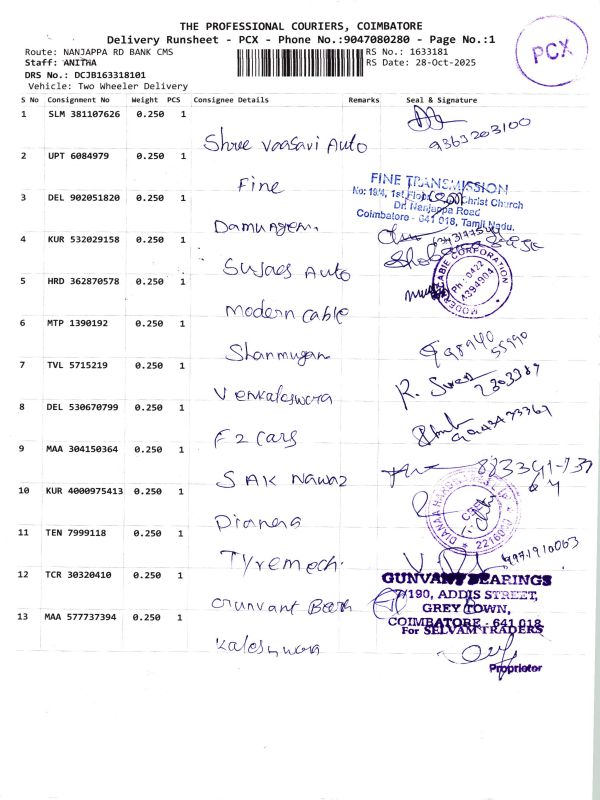 THE PROFESSIONAL COURIERS, COIMBATORE
Delivery Runsheet - PCX - Phone No.:9047080280 - Page No.:1
Route: NANJAPPA RD BANK CMS
RS No.: 1633181
Staff: ANITHA
RS Date: 28-Oct-2025
DRS No.: DCJB163318101
Vehicle: Two Wheeler Delivery
PCX
S No Consignment No Weight PCS Consignee Details Remarks Seal & Signature
1 SLM 381107626 0.250 1 Shree Vaasavi Auto 9363203100
2 UPT 6084979 0.250 1 Fine
FINE TRANSMISSION
No: 19/4, 1st Floor, Christ Church
Dr. Nanjappa Road
Coimbatore - 641 018, Tamil Nadu.
3 DEL 902051820 0.250 1
4 KUR 532029158 0.250 1 Auto
5 HRD 362870578 0.250 1 Modern Cable
MODERN CABLE CORPORATION
Ph: 0422
4394904
6 MTP 1390192 0.250 1 Shanmugam
7 TVL 5715219 0.250 1 Venkateswara
8 DEL 530670799 0.250 1 F2 Cars
9 MAA 304150364 0.250 1 SAK Nawaz
10 KUR 4000975413 0.250 1 Dianaa
11 TEN 7999118 0.250 1 Tyremech
12 TCR 30320410 0.250 1 Gunvant Bear
GUNVANT BEARINGS
7/190, ADDIS STREET,
GREY TOWN,
COIMBATORE - 641 018.
13 MAA 577737394 0.250 1
For SELVAM TRADERS
Proprietor